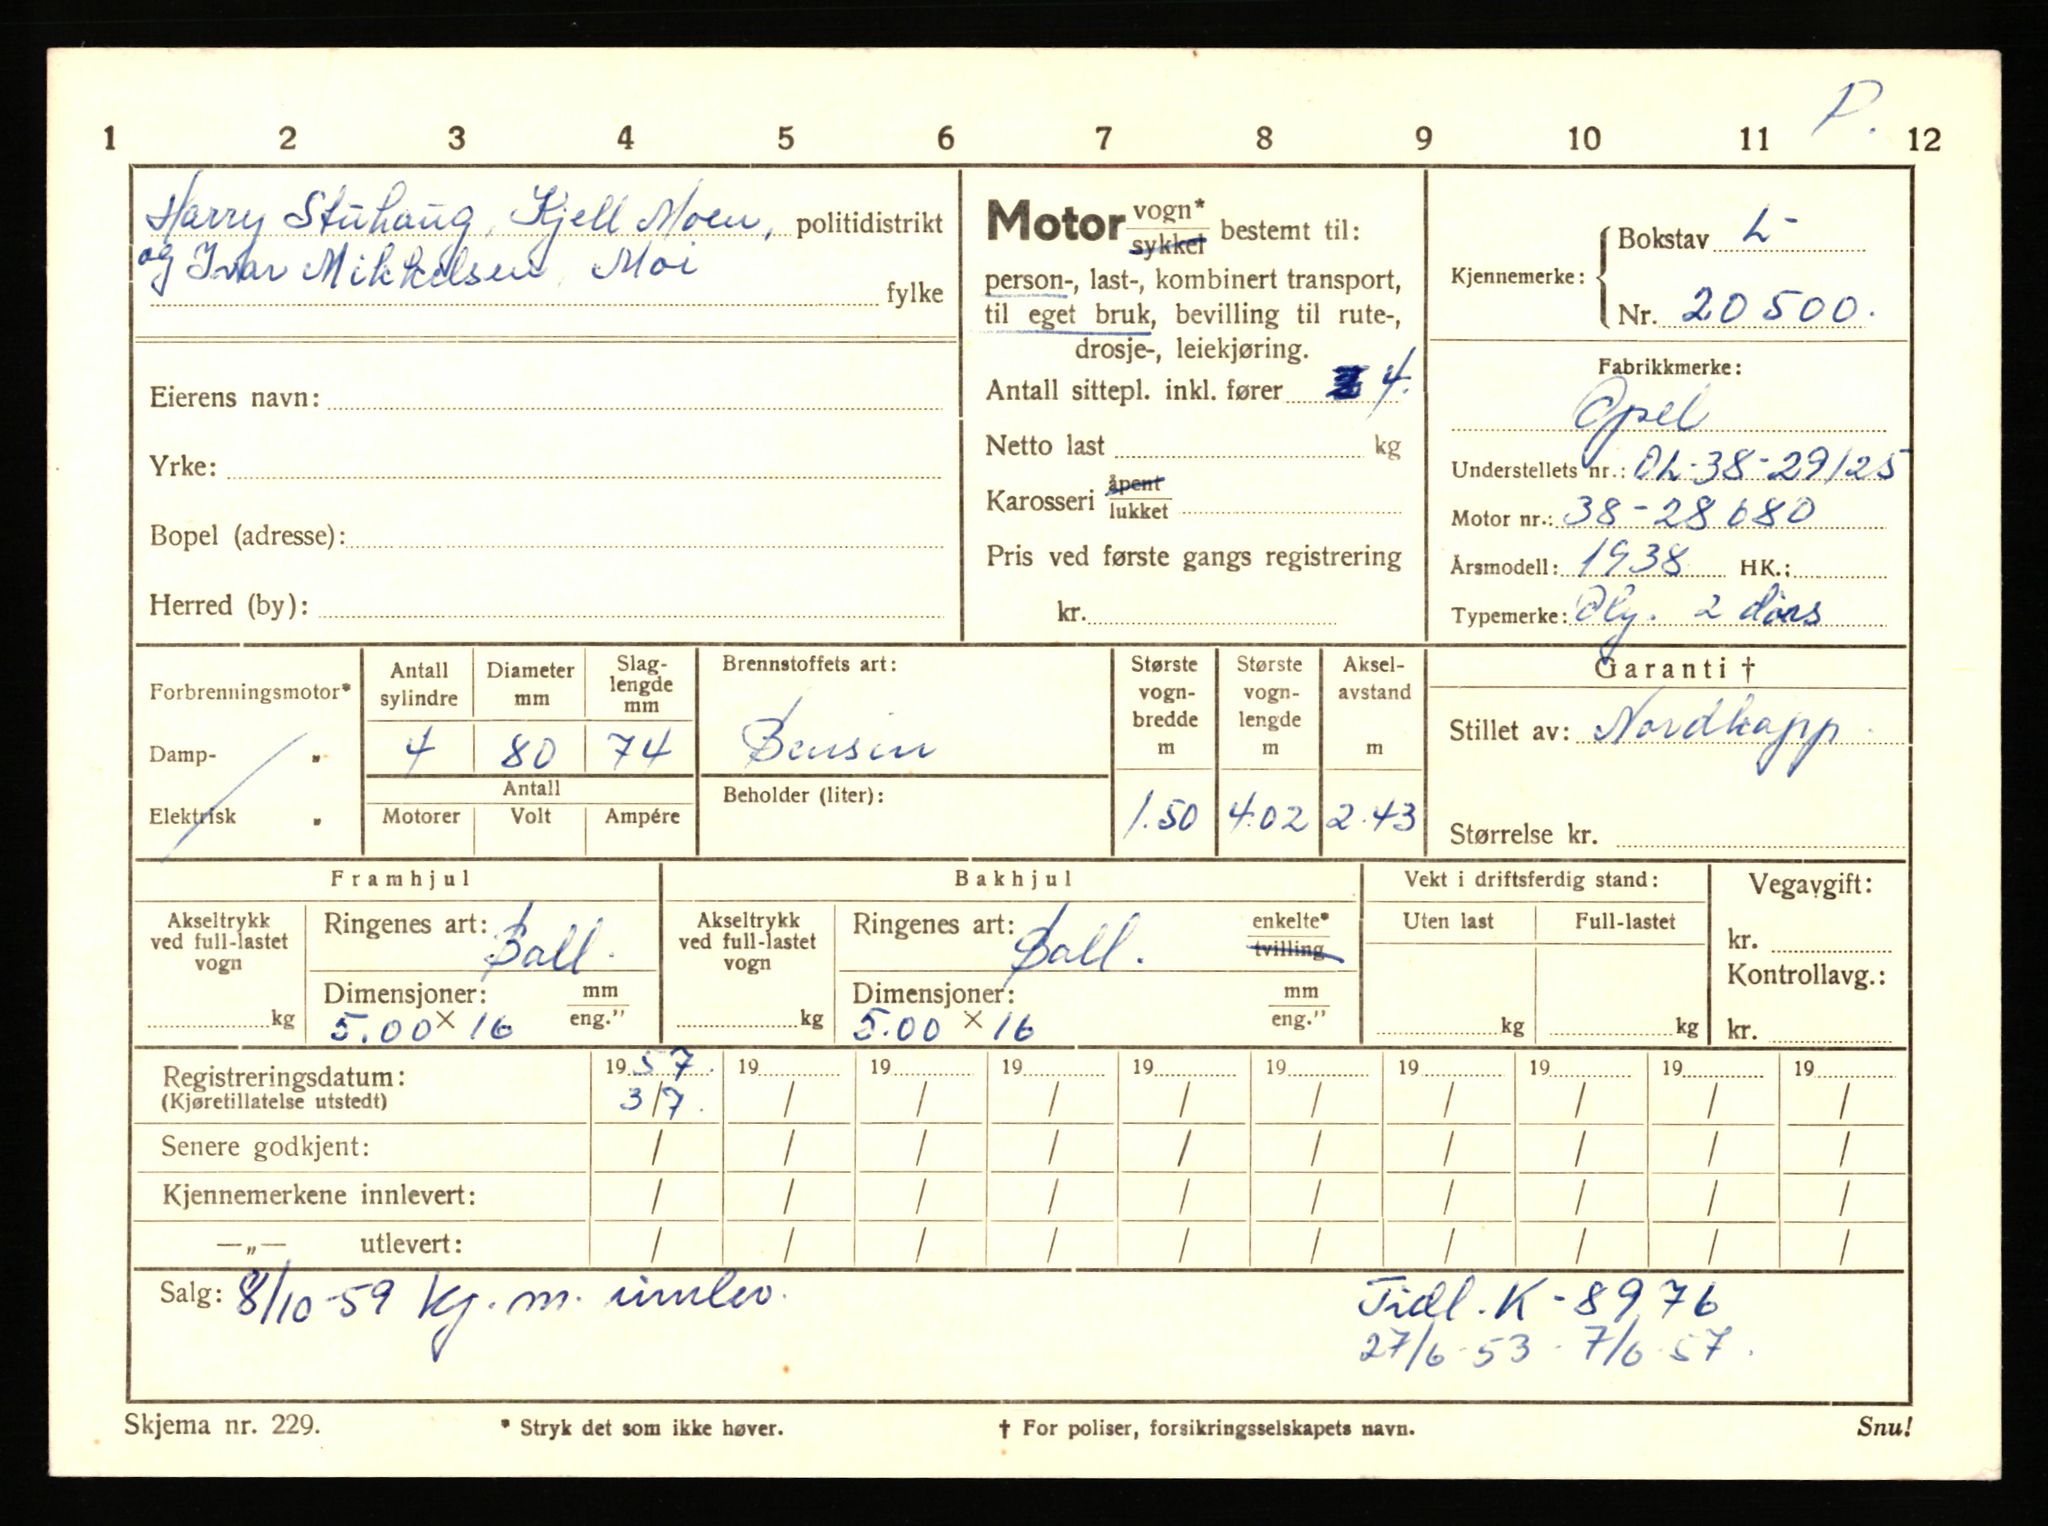 P.
1 2 3 4 5 6 7 8 9 10 11 12
Harry Stuhaug, Kjell Moen, politidistrikt
og Ivar Mikkelsen, Moi
fylke
Eierens navn:
Yrke:
Bopel (adresse):
Herred (by):
Motor vogn*
sykkel bestemt til:
person-, last-, kombinert transport,
til eget bruk, bevilling til rute-,
drosje-, leiekjøring.
Antall sittepl. inkl. fører 4.
Netto last kg
Karosseri åpent
lukket
Pris ved første gangs registrering
kr.
Kjennemerke: Bokstav L-
Nr. 20500.
Fabrikkmerke:
Opel
Understellets nr.: OL-38-29125
Motor nr.: 38-28680
Årsmodell: 1938 HK.:
Typemerke: Oly. 2 dørs
Forbrenningsmotor*
Damp- „
Elektrisk „
Antall sylindre
Diameter mm
Slaglengde mm
4 80 74
Antall
Motorer Volt Ampére
Brennstoffets art:
Bensin
Beholder (liter):
Største vognbredde m
1.50
Største vognlengde m
4.02
Akselavstand m
2.43
Garanti †
Stillet av: Nordkapp
Størrelse kr.
Framhjul
Akseltrykk
ved full-lastet
vogn
kg
Ringenes art: Ball.
Dimensjoner: mm
eng."
5.00 × 16
Bakhjul
Akseltrykk
ved full-lastet
vogn
kg
Ringenes art: Ball. enkelte*
tvilling
Dimensjoner: mm
eng."
5.00 × 16
Vekt i driftsferdig stand:
Uten last Full-lastet
kg kg
Vegavgift:
kr.
Kontrollavg.:
kr.
Registreringsdatum: 1957. 19 19 19 19 19 19 19 19 19
(Kjøretillatelse utstedt) 3/7. / / / / / / / / /
Senere godkjent: / / / / / / / / / /
Kjennemerkene innlevert: / / / / / / / / / /
—„— utlevert: / / / / / / / / / /
Salg: 8/10-59 kj. m. innlev.
Tidl. K-8976
27/6-53 - 7/6-57.
Skjema nr. 229. * Stryk det som ikke høver. † For poliser, forsikringsselskapets navn. Snu!